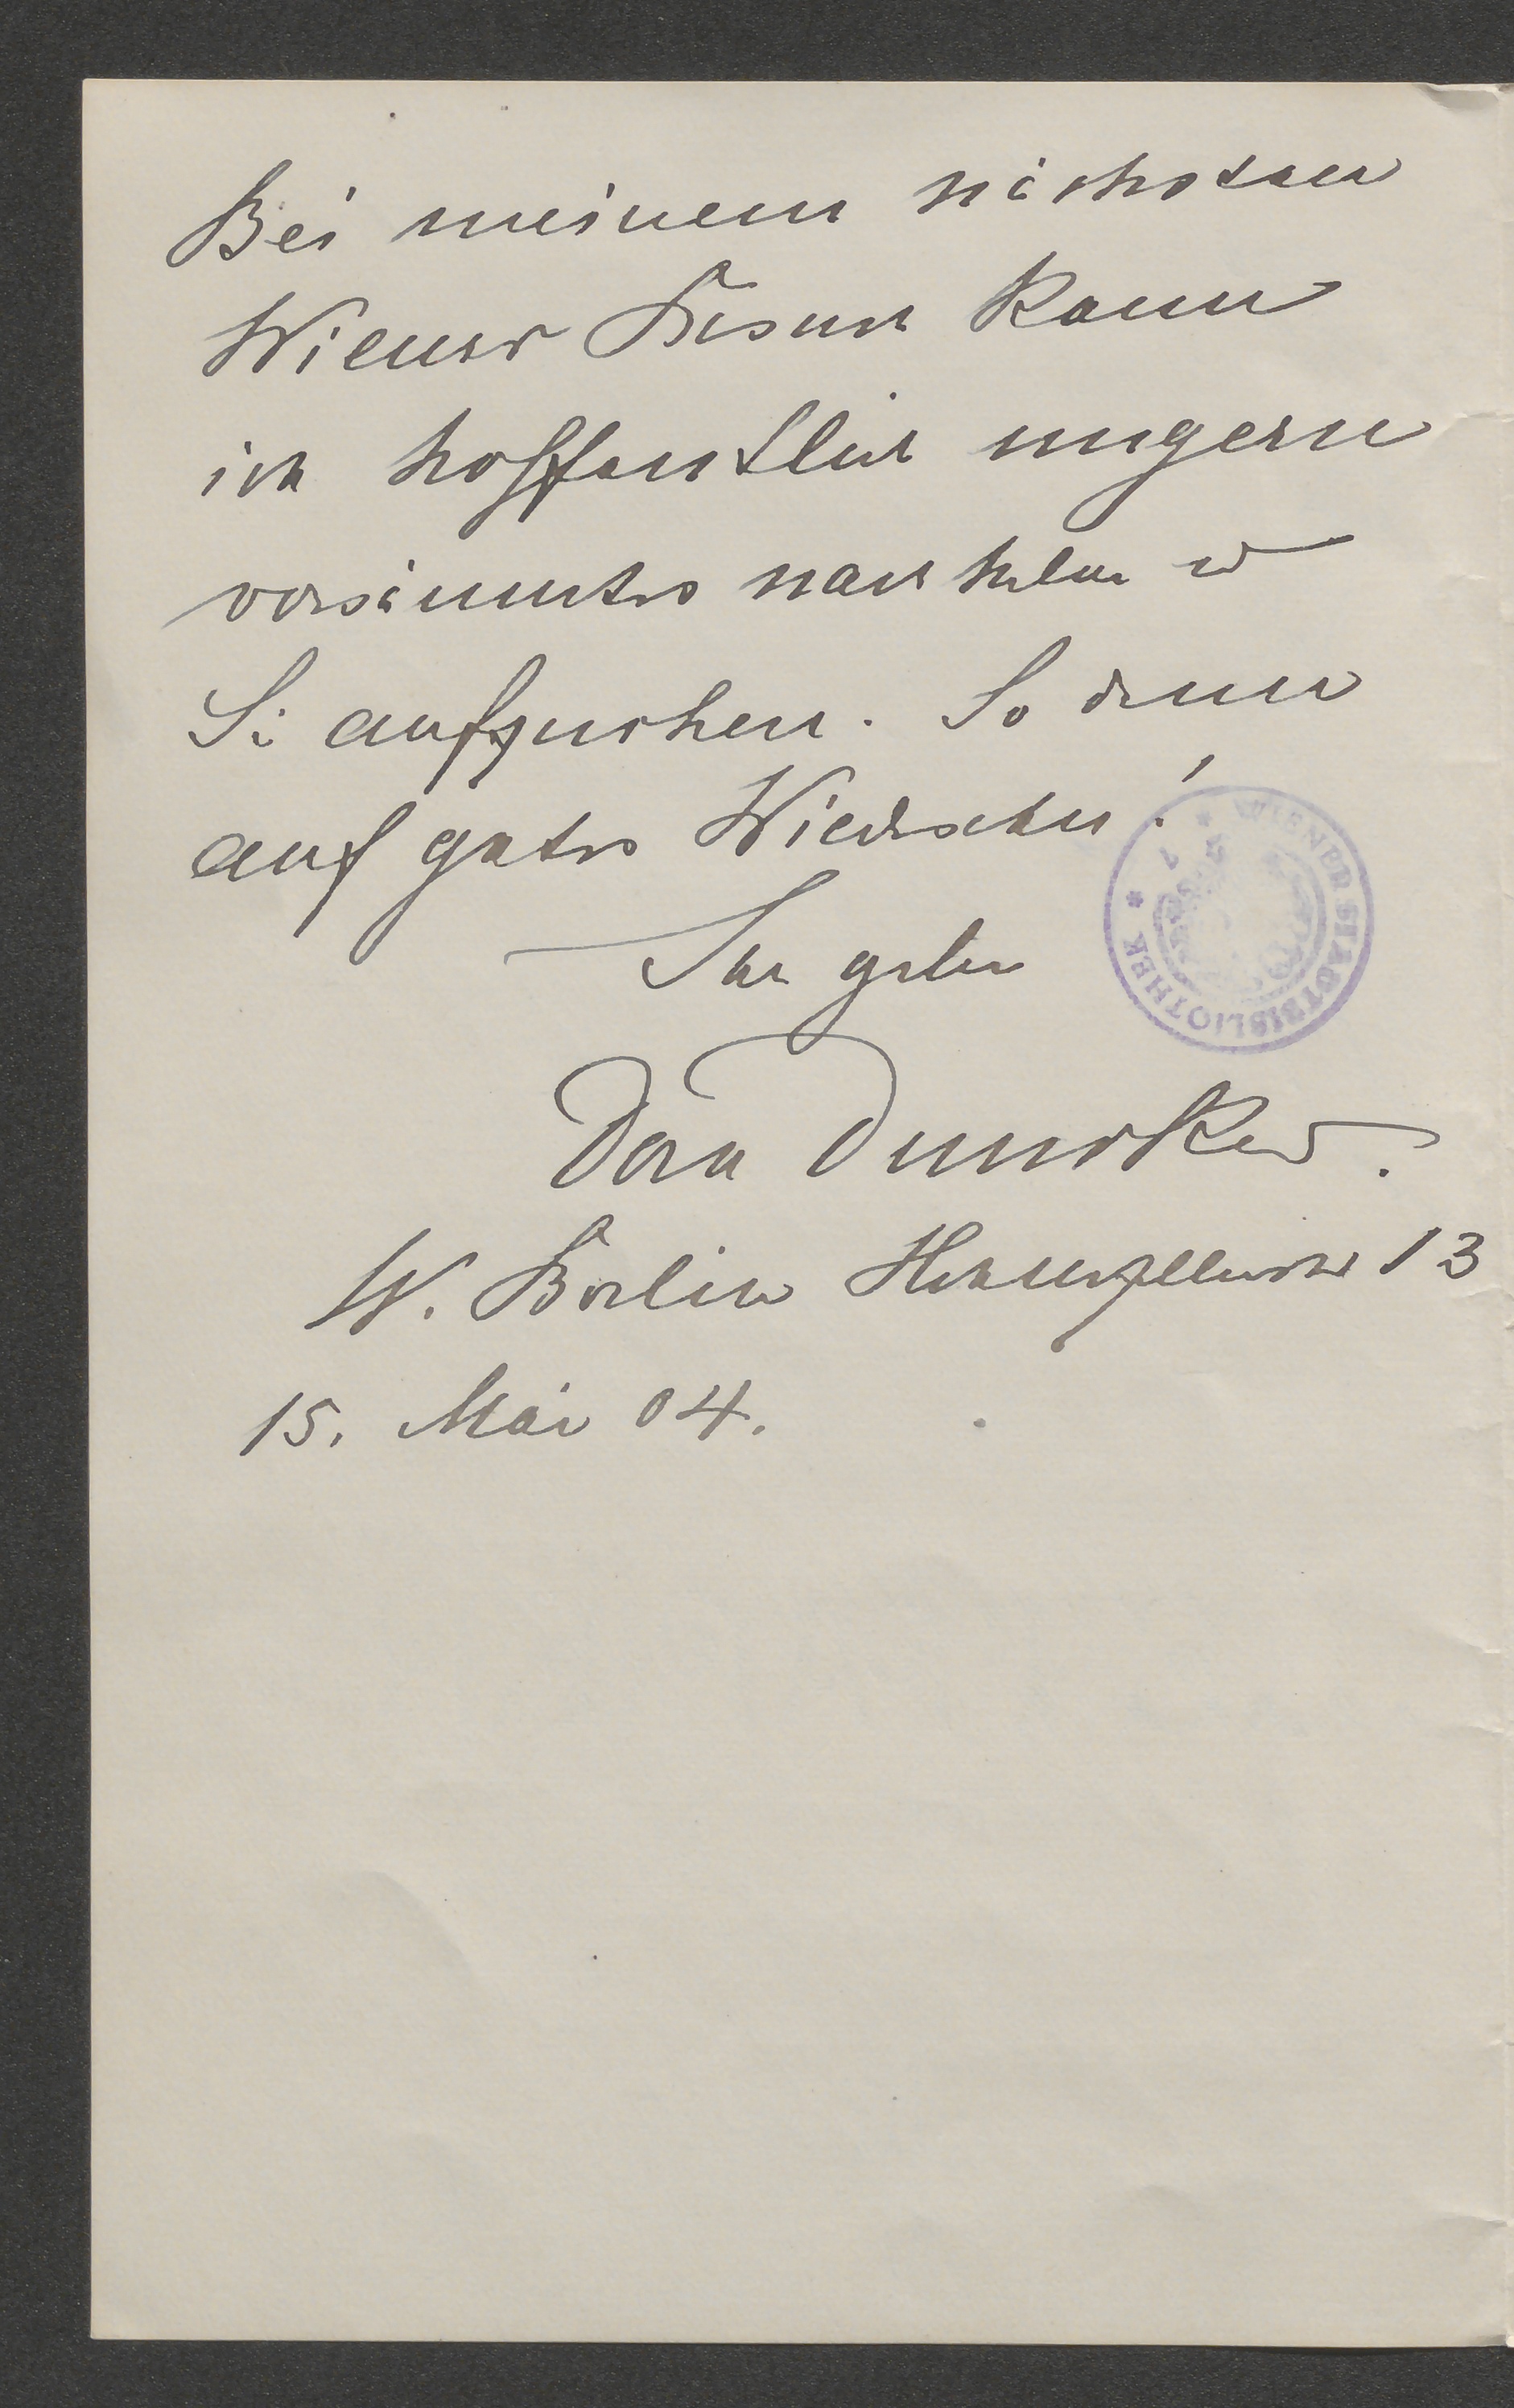 Bei meinem nächsten
Wiener Besuch kann
ich hoffentlich ungern
versäumtes nachholen u
Sie aufsuchen. So denn
auf gutes Wiedersehn!
Ihr
Dora Duncker.
W. Berlin Hohenzollernstr 13
15. Mai 04.
WIENER STADTBIBLIOTHEK